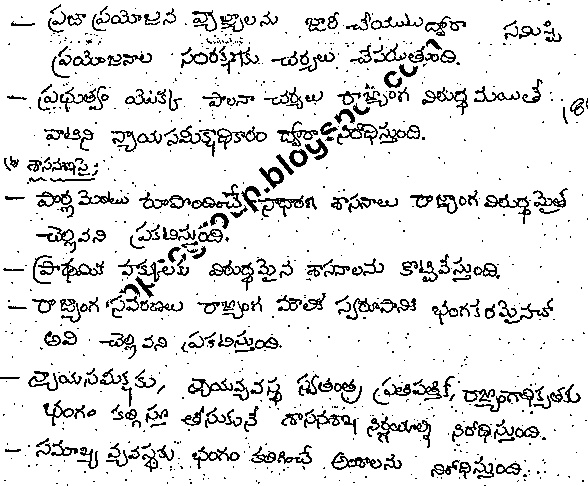 – ప్రజా ప్రయోజన వ్యాజ్యాలను జారీ చేయుటద్వారా సమిష్టి
ప్రయోజనాల సంరక్షణకు చర్యలు చేపడుతుంది.
– ప్రభుత్వం యొక్క పాలనా చర్యలు రాజ్యాంగ విరుద్ధమయితే
వాటిని న్యాయసమీక్షాధికారం ద్వారా నిరోధిస్తుంది.
శాసనశాఖపై:
– పార్లమెంటు రూపొందించే సాధారణ శాసనాలు రాజ్యాంగ విరుద్ధమైతే
చెల్లవని ప్రకటిస్తుంది.
– ప్రాథమిక హక్కులకు విరుద్ధమైన శాసనాలను కొట్టివేస్తుంది.
– రాజ్యాంగ సవరణలు రాజ్యాంగ మౌలిక స్వరూపానికి భంగకరమైనచో
అవి చెల్లవని ప్రకటిస్తుంది.
– న్యాయసమీక్షకు, న్యాయవ్యవస్థ స్వతంత్ర ప్రతిపత్తికి, రాజ్యాంగాధిక్యతకు
భంగం కల్గిస్తూ తీసుకునే శాసనశాఖ నిర్ణయాల్ని నిరోధిస్తుంది.
– సమాఖ్య వ్యవస్థకు భంగం కలిగించే అంశాలను నిరోధిస్తుంది.